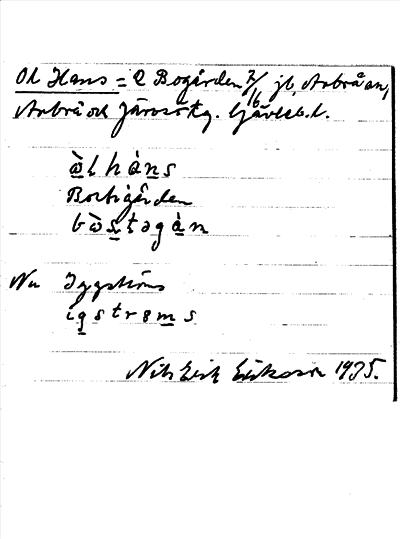 Ol Hans = 2 Bogården 7/16 jb, Arbrå an,
Arbrå och Järvsö tg. Gävleb. l.
ὰl hàns
Bortigården
bὰstəgàn
Nu Iggströms
igströms
Nils Erik Eriksson 1935.